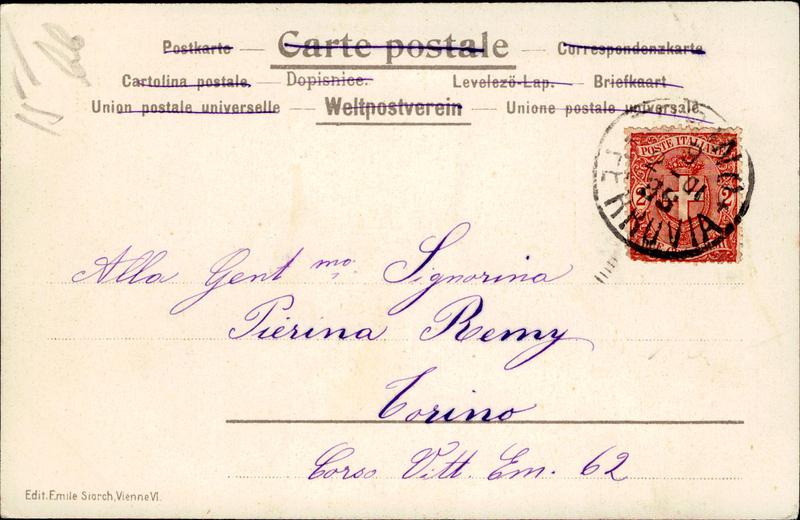 Postkarte — Carte postale — Correspondenzkarte
Cartolina postale. — Dopisnice. Levelező-Lap. — Briefkaart
Union postale universelle — Weltpostverein — Unione postale universale
POSTE ITALIANE
2 2
FERROVIA
Alla Gent.mo Signorina
Pierina Remy
Torino
Corso Vitt. Em. 62
Edit. Emile Storch, Vienne VI.